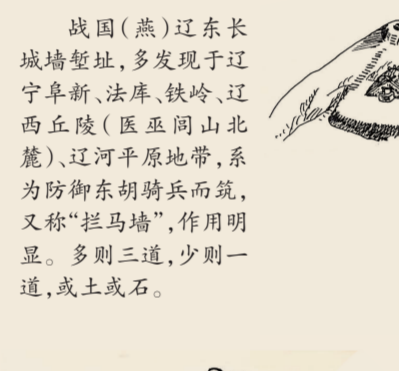 战国(燕)辽东长
城墙堑址,多发现于辽
宁阜新、法库、铁岭、辽
西丘陵(医巫闾山北
麓)、辽河平原地带,系
为防御东胡骑兵而筑,
又称“拦马墙”,作用明
显。多则三道,少则一
道,或土或石。